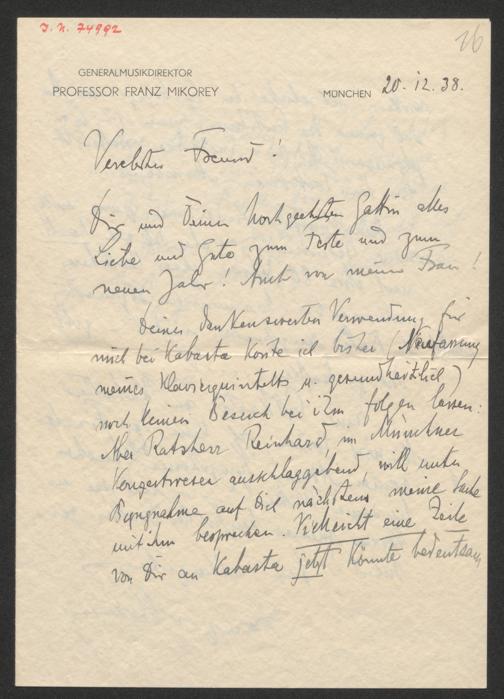 I. N. 74992
16
GENERALMUSIKDIREKTOR
PROFESSOR FRANZ MIKOREY
MÜNCHEN 20. 12. 38.
Verehrter Freund!
Dir und Deiner hochgeehrten Gattin alles
Liebe und Gute zum Feste und zum
neuen Jahr! Auch von meiner Frau!
Deiner dankenswerten Verwendung für
mich bei Kabasta konte ich bisher (Neufassung
meines Klavierquintetts u. gesundheitlich)
noch keinen Besuch bei ihm folgen lassen.
Aber Ratsherr Reinhard, im Münchner
ausschlaggebend, will unter
Bezugnahme auf Dich nächstens meine Sache
mit ihm besprechen. Vielleicht eine Zeile
von Dir an Kabasta jetzt könnte bedeutsam